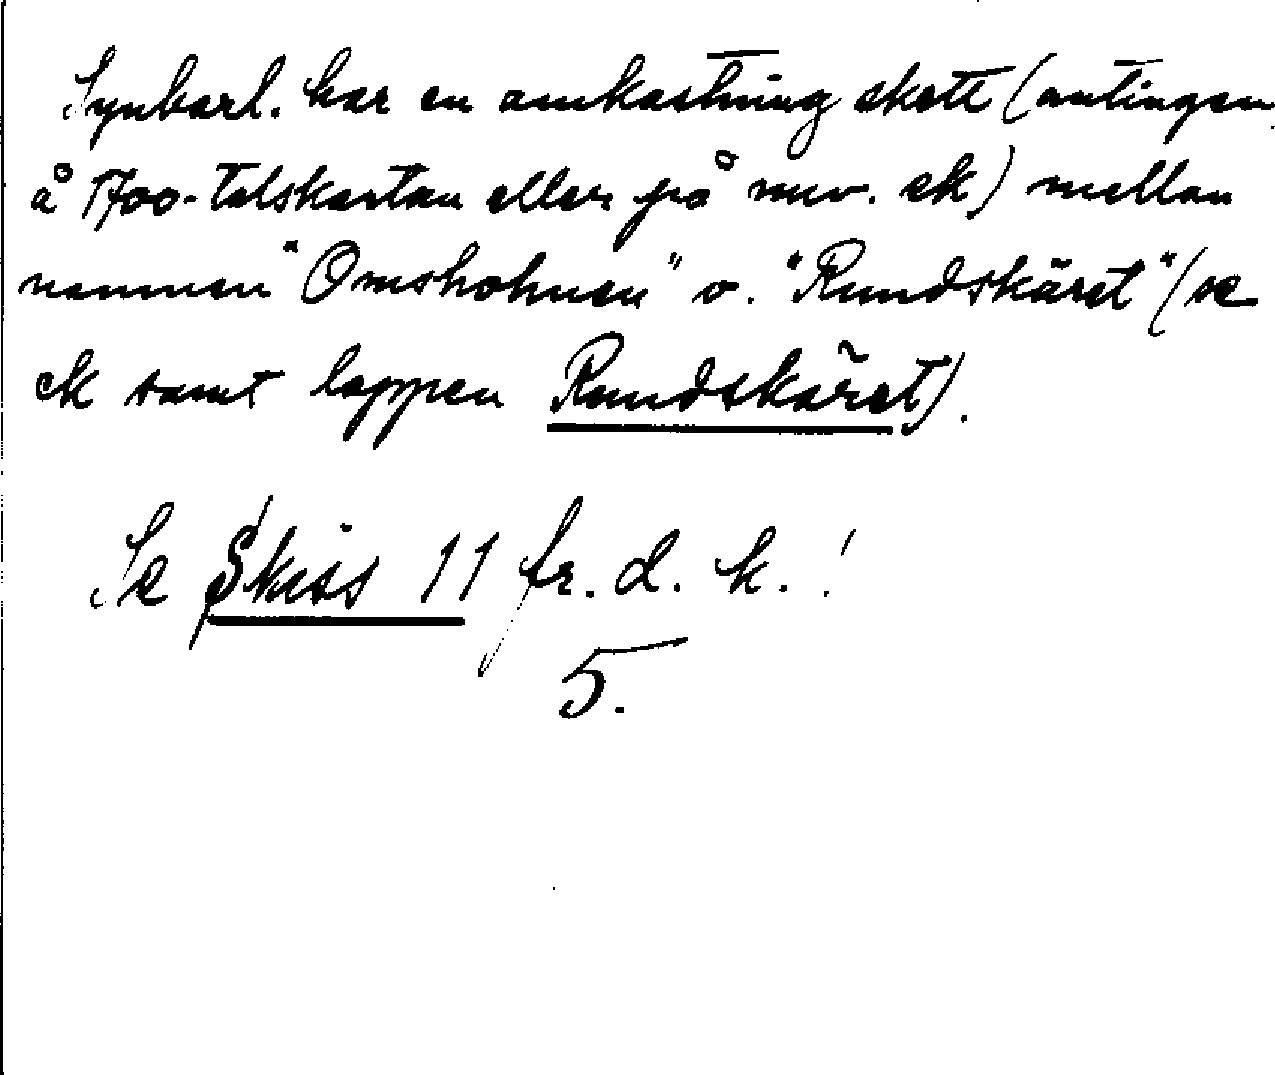 Synbarl. har en omkastning skett (antingen
å 1700-talskartan eller på nuv. ek) mellan
namnen "Omsholmen" o. "Rundskäret" (se
ek samt lappen Rundskäret).
Se Skiss 11 fr. d. k.!
5.